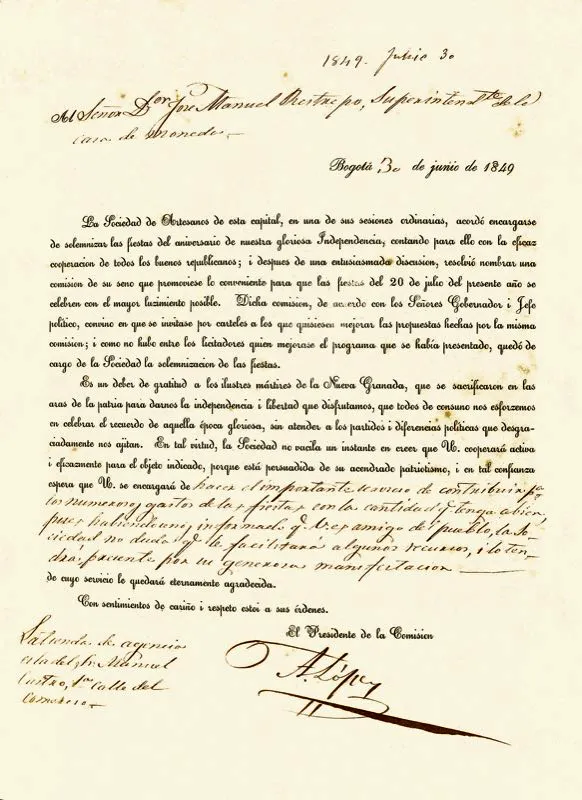 1849. Junio 30
Al Señor Dor José Manuel Restrepo, Superintente de la
casa de moneda
Bogotá 30 de junio de 1849
La Sociedad de Artesanos de esta capital, en una de sus sesiones ordinarias, acordó encargarse
de solemnizar las fiestas del aniversario de nuestra gloriosa Independencia, contando para ello con la eficaz
cooperacion de todos los buenos republicanos; i despues de una entusiasmada discusion, resolvió nombrar una
comision de su seno que promoviese lo conveniente para que las fiestas del 20 de julio del presente año se
celebren con el mayor luzimiento posible. Dicha comision, de acuerdo con los Señores Gobernador i Jefe
político, convino en que se invitase por carteles a los que quisiesen mejorar las propuestas hechas por la misma
comision; i como no hubo entre los licitadores quien mejorase el programa que se había presentado, quedó de
cargo de la Sociedad la solemnizacion de las fiestas.
Es un deber de gratitud a los ilustres mártires de la Nueva Granada, que se sacrificaron en las
aras de la patria para darnos la independencia i libertad que disfrutamos, que todos de consuno nos esforzemos
en celebrar el recuerdo de aquella época gloriosa, sin atender a los partidos i diferencias políticas que desgra-
ciadamente nos ajitan. En tal virtud, la Sociedad no vacila un instante en creer que U. cooperará activa
i eficazmente para el objeto indicado, porque está persuadida de su acendrado patriotismo, i en tal confianza
espera que U. se encargará de hacer el importante servicio de contribuir pa
los numerosos gastos de las fiestas con la cantidad qe tenga a bien,
pues habiendonos informado qe U. es amigo del pueblo, la So-
ciedad no duda qe le facilitará algunos recursos, i lo ten-
drá presente por su generosa manifestacion
de cuyo servicio le quedará eternamente agradecida.
Con sentimientos de cariño i respeto estoi a sus órdenes.
El Presidente de la Comision
A. López
La tienda de agencia
es la del Sr. Manuel
Castro, 1a Calle del
Comercio